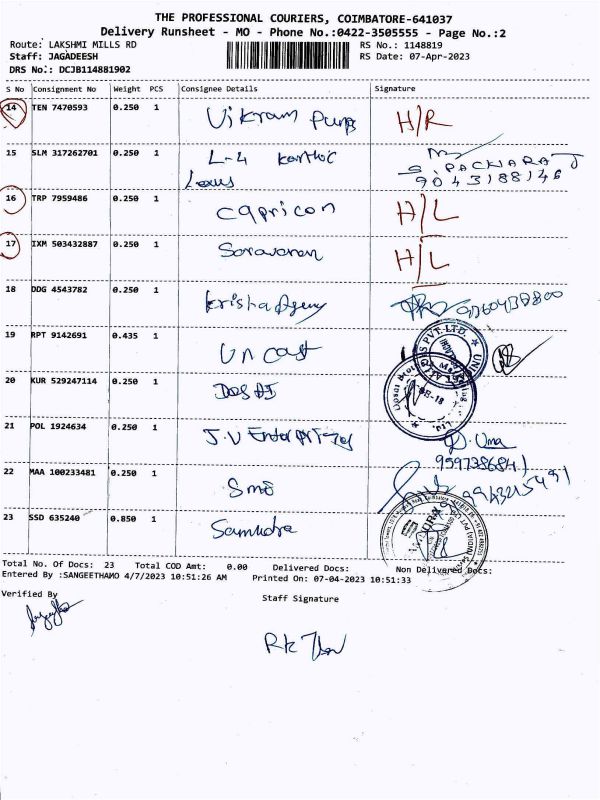 THE PROFESSIONAL COURIERS, COIMBATORE-641037
Delivery Runsheet - MO - Phone No.:0422-3505555 - Page No.:2
Route: LAKSHMI MILLS RD
RS No.: 1148819
Staff: JAGADEESH
RS Date: 07-Apr-2023
DRS No.: DCJB114881902
S No Consignment No Weight PCS Consignee Details Signature
14 TEN 7470593 0.250 1 Vikram Pump H/R
15 SLM 317262701 0.250 1 L-4
S. PACKIARAJ
9043188146
16 TRP 7959486 0.250 1 Capricon H/L
17 IXM 503432887 0.250 1 Saravanan H/L
18 DDG 4543782 0.250 1 Krisha Agency
19 RPT 9142691 0.435 1 Uncast
20 KUR 529247114 0.250 1
21 POL 1924634 0.250 1 J.V Enterprizes D. Uma
9597386841
22 MAA 100233481 0.250 1
23 SSD 635240 0.850 1 Samudra
Total No. Of Docs: 23 Total COD Amt: 0.00 Delivered Docs: Non Delivered Docs:
Entered By :SANGEETHAMO 4/7/2023 10:51:26 AM Printed On: 07-04-2023 10:51:33
Verified By
Staff Signature